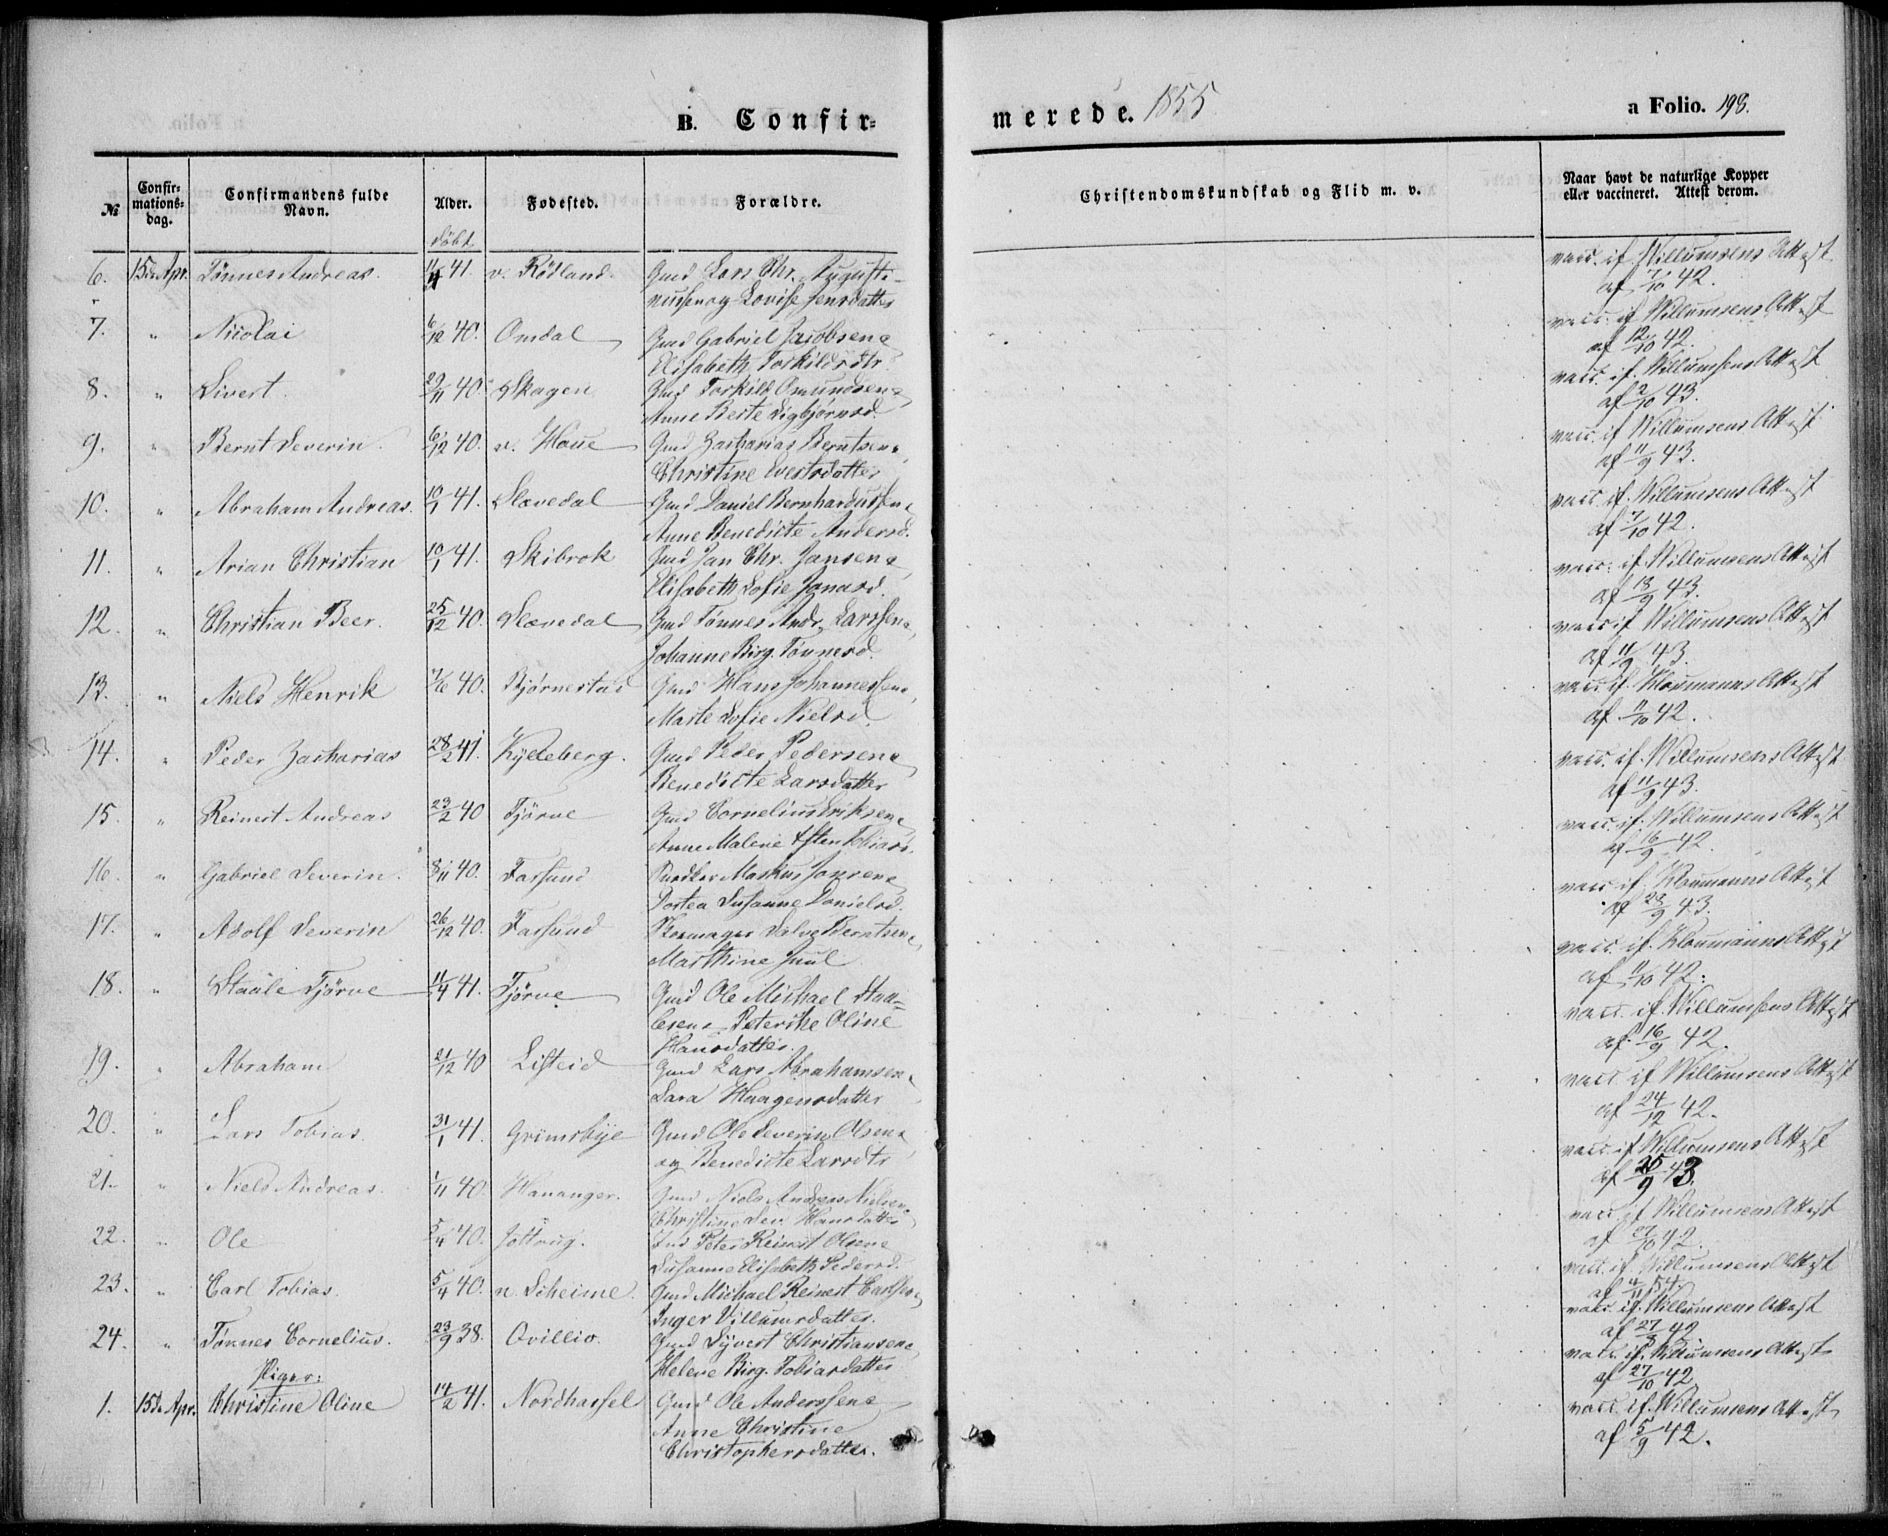 B. Confir=
merede. 1855
a Folio. 198.
№
Confir=
mations=
dag.
Confirmandens fulde
Navn.
Alder.
Fødested.
Forældre.
Christendomskundskab og Flid m. v.
Naar havt de naturlige Kopper
eller vaccineret. Attest derom.
døbt
6. 15de Apr. Tønnes Andreas. 41 v. Rødland. Gmd Lars Chr. Augusti-
nussen og Lovise Jensdatter
vacc. if. Willumsens Attest
af 7/10 42.
7. " Nicolai 6/12 40. Omdal Gmd Gabriel Jacobsen
Elisabeth Torkildsdtr
vacc. if Willumsens Attest
af 12/10 42.
8. " Sivert. 29/11 40. Skagen Gmd Torkild Omundsen
Anne Berte Sigbjørnsd.
vacc. if. Willumsens Attest
af 2/10 43.
9. " Bernt Severin. 6/12 40. n. Haue Gmd Zacharias Berntsen
Christine Evertsdatter
vacc. if Willumsens Attest
af 11/9 43.
10. " Abraham Andreas. 10/1 41. Slævedal Gmd Daniel Bernhardussen
Anne Benedicte Andersd.
vacc. if. Willumsens Attest
af 7/10 42.
11. " Arian Christian 10/1 41. Skibrok Gmd Jan Chr. Jansen
Elisabeth Sofie Jonasd.
vacc. if. Willumsens Attest
af 13/9 43.
12. " Christian Beer. 25/12 40. Slævedal Gmd Tønnes Andr. Larssen
Johanne Birg. Tønnesd.
vacc if Willumsens Attest
af 11/9 43.
13. " Niels Henrik 40. Bjørnestad Gmd Hans Johannessen
Marte Sofie Nielsd
vacc if. Kloumanns Attest
af 11/10 42.
14. " Peder Zacharias 28/2 41. Kjelleberg. Gmd Peder Pedersen
Benedicte Larsdatter
vacc. if. Willumsens Attest
af 11/9 43.
15. " Reinert Andreas 23/2 40 Tjørve Gmd Cornelius Eriksen
Anne Malene Tobiasd.
vacc. if. Willumsens Attest
af 16/9 42.
16. " Gabriel Severin. 8/11 40. Farsund Markus Jonsen
Dortea Susanne Danielsd.
vacc. if. Kloumanns Attest
af 23/9 43.
17. " Adolf Severin 26/12 40. Farsund Skomager Salve Berntsen
Marthine Juul
vacc. if. Kloumanns Attest
af 11/10 42.
18. " Staale Tjørve 11/4 41. Tjørve Gmd Ole Michael Staa-
lesen Peterike Oline
Hansdatter.
vacc. if. Willumsens Attest
af 16/9 42.
19. " Abraham 21/12 40 Listeid Gmd Lars Abrahamsen
Sara Haagensdatter
vacc if Willumsens Attest
af 24/12 42.
20. " Lars Tobias. 31/1 41. Grimsbye Gmd Ole Severin Olsen
og Benedicte Larsdtr
vacc. if Willumsens Attest
af 25/9 43.
21. " Niels Andreas. 1/11 40. Hananger. Gmd Niels Andreas Nielsen
Christine Sev. Hansdatter
vacc if Willumsens Attest
af 42.
22. " Ole 5/4 40. Jøttrug. Ind Peter Reinert Olsen
Susanne Elisabeth Pedersd.
vacc. if. Willumsens Attest
af
23. " Carl Tobias. 5/4 40. n Scheime. Gmd Michael Reinert Carlsen
Inger Villumsdatter.
vacc if. Willumsens Attest
af 27/ 42
24. " Tønnes Cornelius. 23/9 38. Ovillio. Gmd Syvert Christiansen
Helene Birg. Tobiasdatter
vacc if. Willumsens Attest
af 27/10 42
Piger:
1. 15de Apr. Christine Oline 14/2 41. Nordhassel Gmd Ole Anderssen
Anne Christine
Christophersdatter.
vacc. if. Willumsens Attest
af 5/9 42.